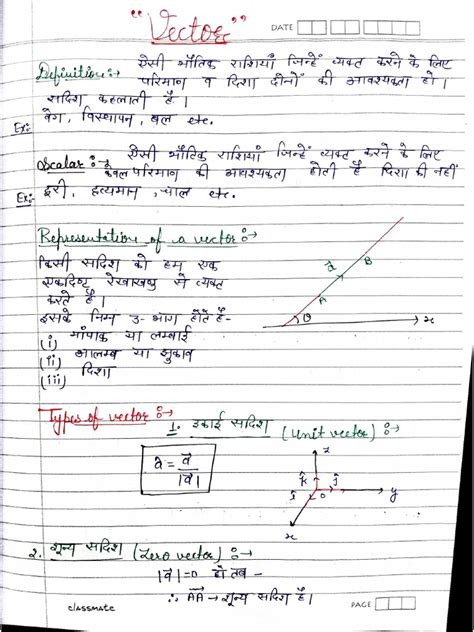 "Vector"
DATE
Definition:→ ऐसी भौतिक राशियाँ जिन्हें व्यक्त करने के लिए
परिमाण व दिशा दोनों की आवश्यकता हो।
सदिश कहलाती हैं।
Ex:- वेग, विस्थापन, बल etc.
Scalar:→ ऐसी भौतिक राशियाँ जिन्हें व्यक्त करने के लिए
केवल परिमाण की आवश्यकता होती है दिशा की नहीं
Ex:- दूरी, द्रव्यमान, चाल etc.
Representation of a vector:→
किसी सदिश को हम एक
एकदिष्ट रेखाखण्ड से व्यक्त
करते हैं।
इसके निम्न 3- भाग होते हैं-
(i) मापांक या लम्बाई
(ii) आलम्ब या झुकाव
(iii) दिशा
θ A B x
Types of vector:→
1. इकाई सदिश (Unit vector):→
â = v⃗/|v⃗|
z
k̂ ĵ
î o y
x
2. शून्य सदिश (Zero vector):→
|v⃗|=0 हो तब -
∴ AA → शून्य सदिश है।
classmate
PAGE